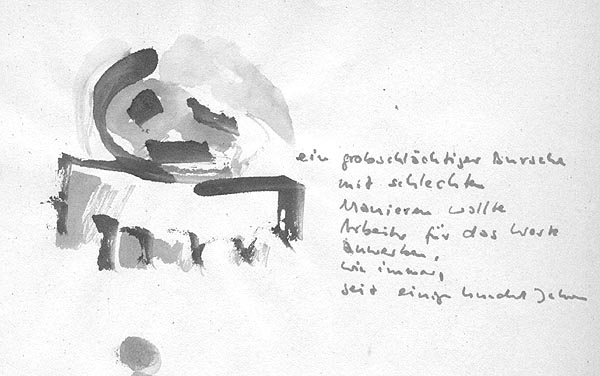 ein grobschlächtiger Bursche
mit schlechten
Manieren wollte
Arbeiter für das Werk
anwerben,
wie immer,
seit einige hundert Jahren